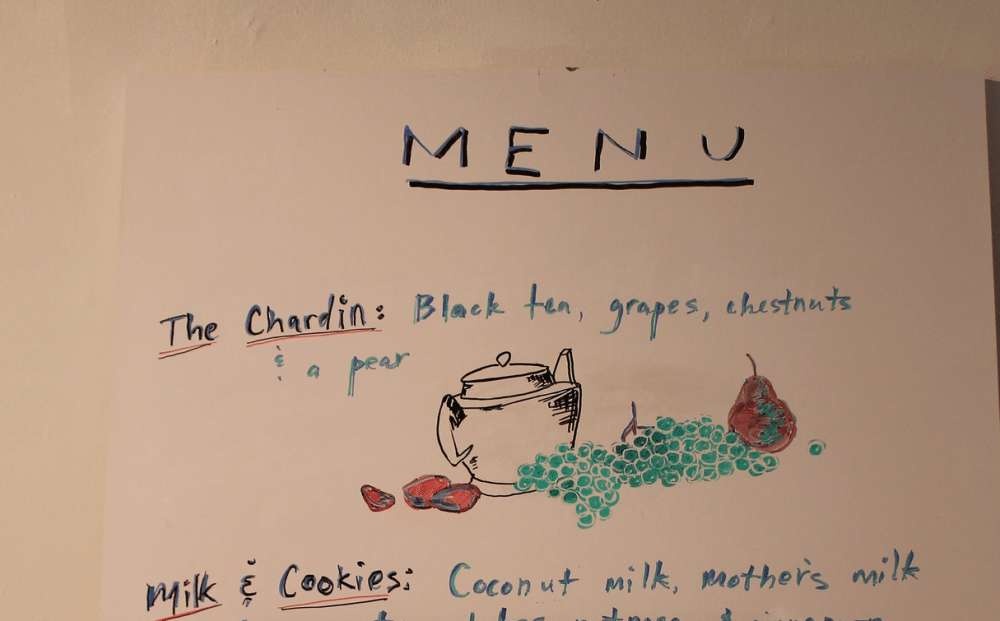 MENU
The Chardin: Black tea, grapes, chestnuts
& a pear
Milk & Cookies: Coconut milk, mother's milk